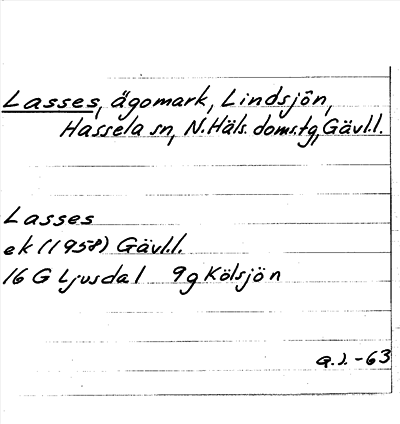 Lasses, ägomark, Lindsjön,
Hassela sn, N.Häls. doms.tg, Gävl.l.
Lasses
ek (1958) Gävl.l.
16 G Ljusdal 9g Kölsjön
G.J. -63